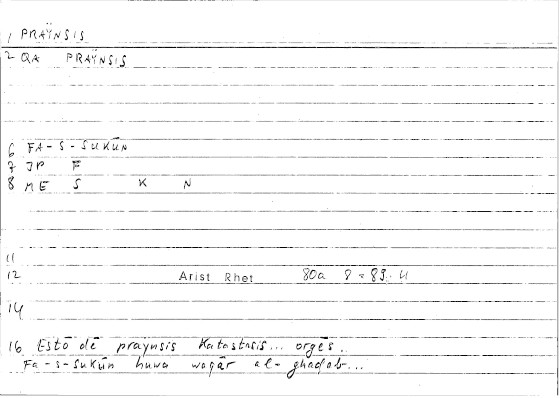 1 PRAÜNSIS
2 QA PRAÜNSIS
6 FA-S-SUKŪN
7 JP F
8 ME S K N
11
12 Arist Rhet 80a 8 = 89. 4
14
16 Estō dē praynsis katastasis... orgēs..
Fa-s-sukūn huwa waqār al-ghadab...